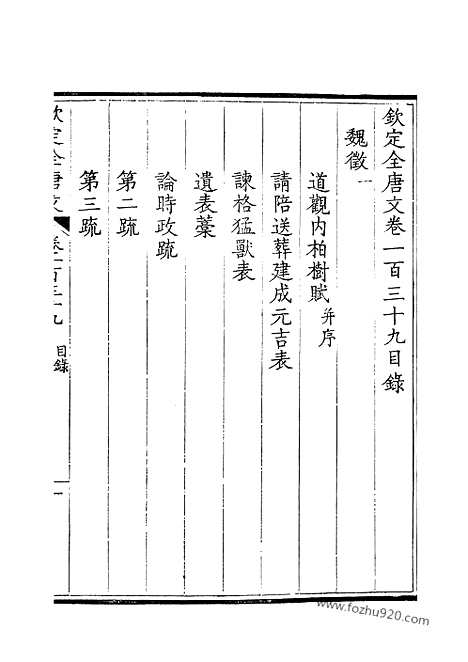 欽定全唐文卷一百三十九目錄
魏徵一
道觀內柏樹賦并序
請陪送葬建成元吉表
諫格猛獸表
遺表藁
論時政疏
第二疏
第三疏
欽定全唐文
卷一百三十九
目錄
一
www.fozhu920.com